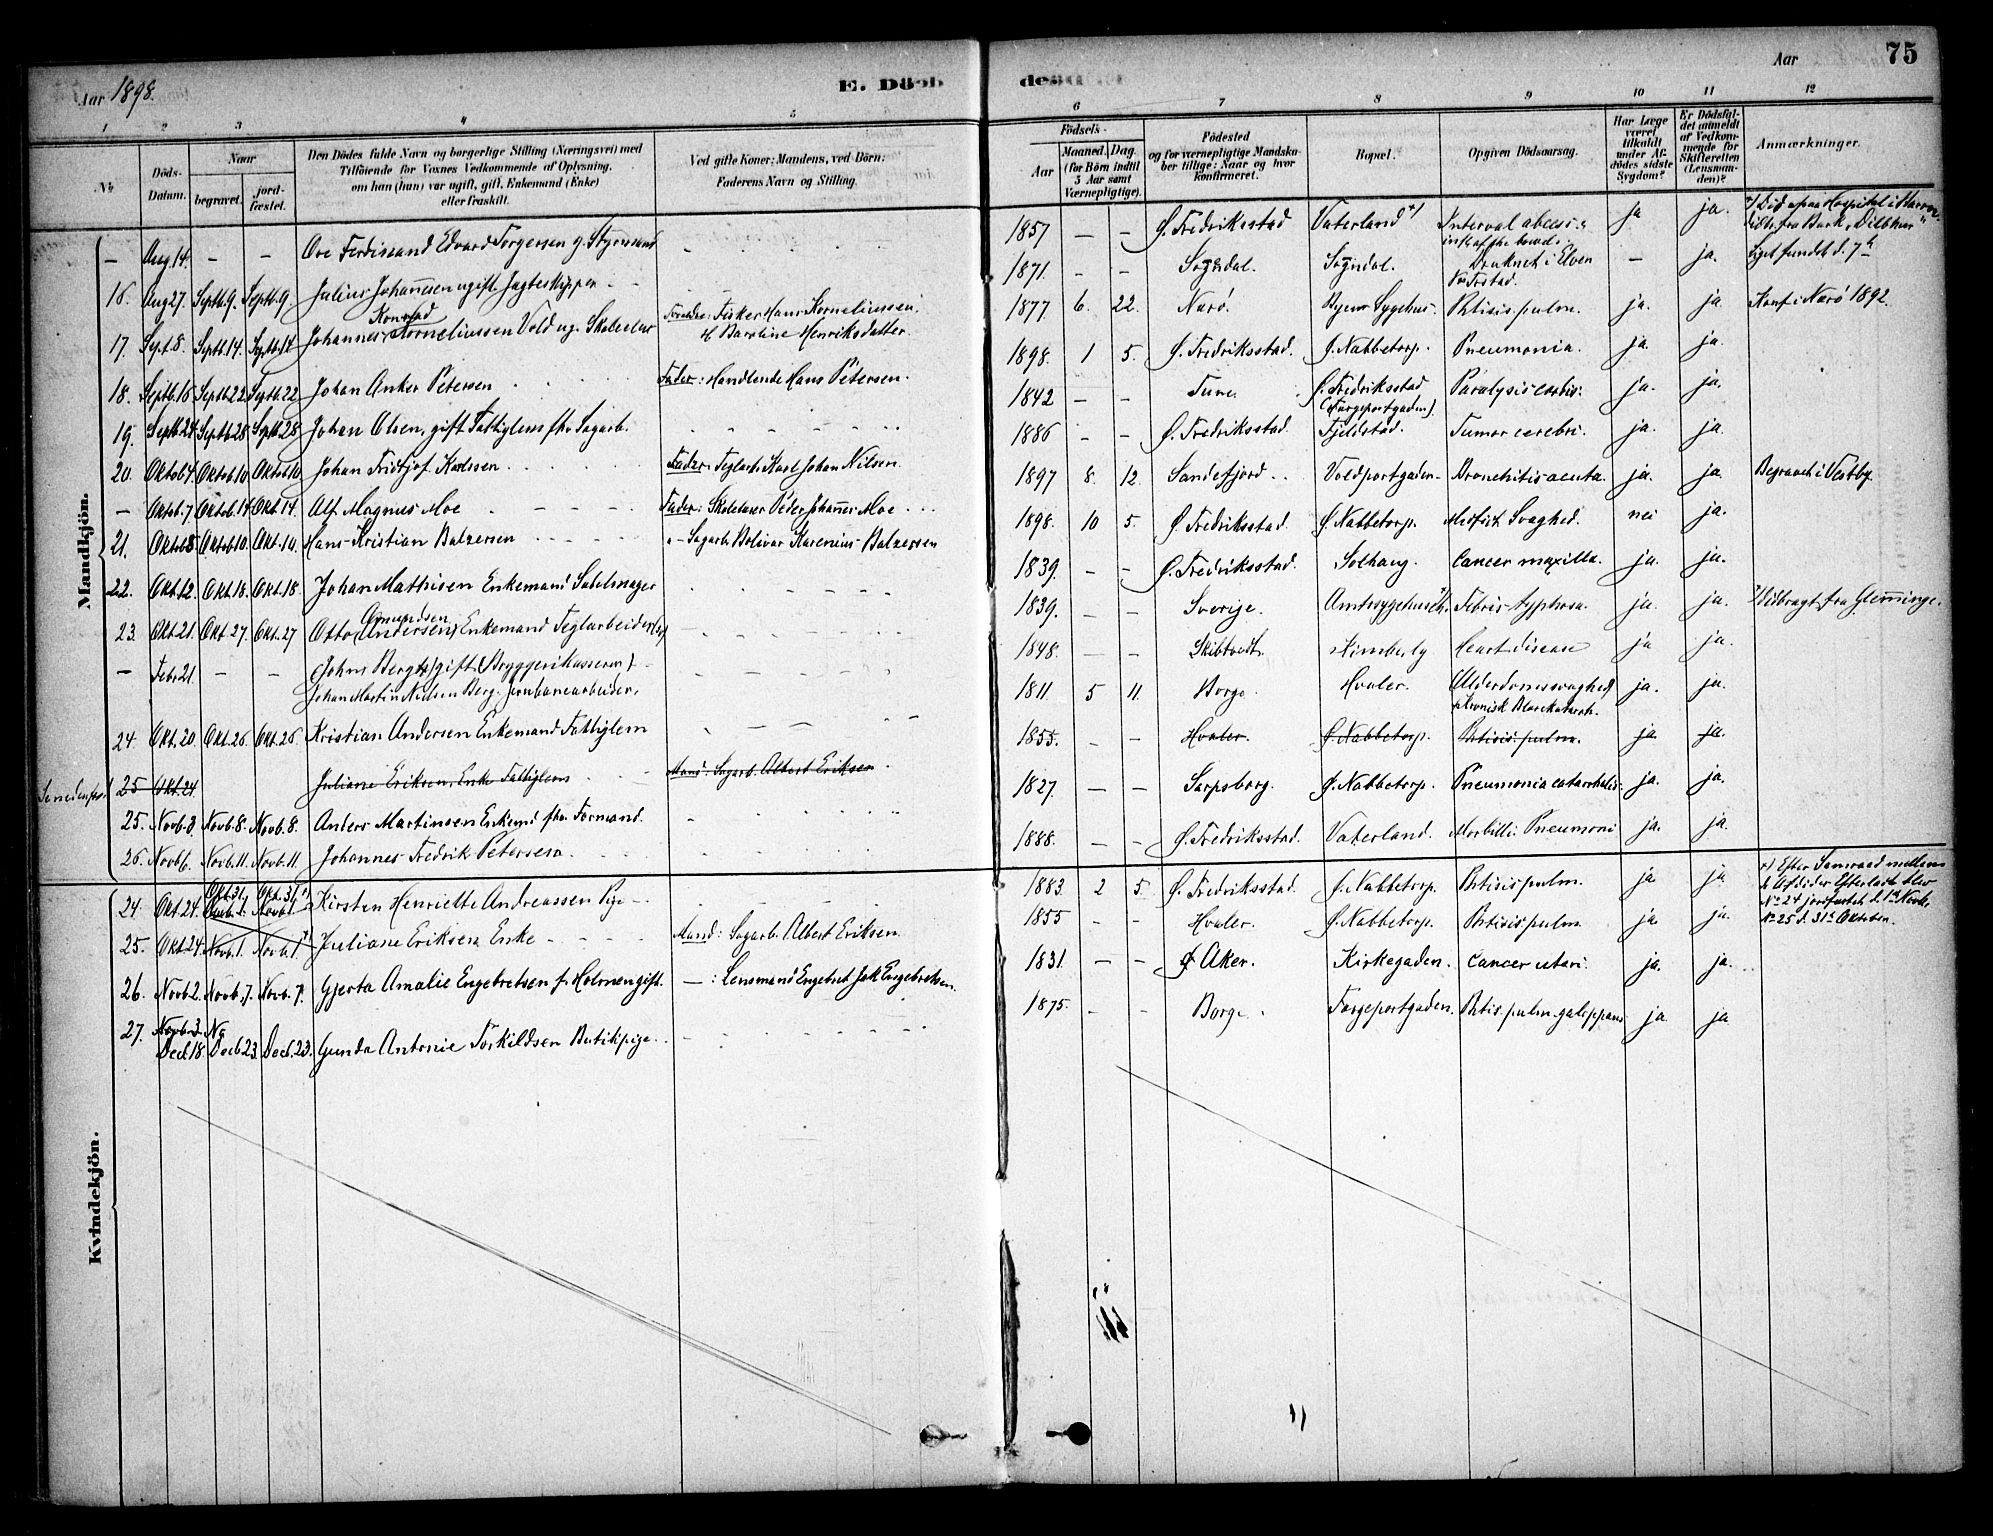 Aar 1898.
E. Döde
Aar
75
1 2 3 4 5 6 7 8 9 10 11 12
No
Döds-Datum.
Naar
begravet.
jord-fæstet.
Den Dödes fulde Navn og borgerlige Stilling (Næringsvei) med
Tilföiende for Voxnes Vedkommende af Oplysning,
om han (hun) var ugift, gift, Enkemand (Enke)
eller fraskilt.
Ved gifte Koner: Mandens, ved Börn:
Faderens Navn og Stilling.
Födsels-
Aar
Maaned. Dag
(for Börn indtil
5 Aar samt
Værnepligtige).
Födested
og for værnepligtige Mandska-
ber tillige: Naar og hvor
konfirmeret.
Bopæl.
Opgiven Dödsaarsag.
Har Læge
været
tilkaldt
under Af-
dödes sidste
Sygdom?
Er Dödsfal-
det anmeldt
af Vedkom-
mende for
Skifteretten
(Lensman-
den)?
Anmærkninger.
Mandkjön.
— Aug. 14. — — Ove Ferdinand Edvard Torgersen g. Styrmand — 1857 — — Ø. Fredriksstad Vaterland +) Interval abcess ja ja. +) Död paa Hospital i
16. Aug 27. Septb. 9. Septb. 9. Julius Johannesen ugift Jagteskipper — 1871. — — Sogndal. Sogndal. Druknet i Elven — ja. Liget fundet d. 7de
17. Sept. 8. Septb. 14 Septb. 14 Johannes Konrad Korneliussen Vold ug. Skoleelev Forældre: Fisker Hans Korneliussen, 1877 6. 22. Narö. Byens Sygehus. Phtisis pulm. ja. ja. Konf. i Narö 1892.
& Baroline Henriksdatter.
18. Septb. 18 Septb. 22 Septb. 22 Johan Anker Petersen Fader: Handlende Hans Petersen. 1898. 1 5. Ø. Fredriksstad. Ø. Nabbetorp. Pneumonia. ja. ja.
19. Septb. 24 Septb. 28 Septb. 28 Johan Olsen, gift Fattiglem fhv. Sagarb. 1842 — — Tune Ø. Fredriksstad (Færgeportgaden). Paralysis cordis. ja. ja.
20. Oktob. 4. Oktob. 10 Oktob. 10 Johan Fridtjof Karlssen Fader: Teglarb. Karl Johan Nilsen. 1886 — — Ø. Fredriksstad. Fjeldstad. Tumor cerebri. ja. ja.
— Oktob. 7 Oktob. 14 Okt. 14. Alf Magnus Moe Fader: Skolelærer Peder Johannes Moe 1897 8. 12. Sandefjord Voldportgaden. Bronchitis acuta. ja. ja. Begravet i Vestby.
21. Oktob. 8 Oktob. 10 Okt. 10. Hans Kristian Balzersen — Sagarb. Bolivar Karenius Balzersen 1898. 10 5. Ø. Fredriksstad. Ø. Nabbetorp. Medfödt Svaghed. nei ja.
22. Okt. 12. Okt. 18. Okt. 18. Johan Mathisen Enkemand Sadelmager 1839. — — Ø. Fredriksstad. Solhaug. Cancer maxilla. ja. ja.
23. Okt. 21. Okt. 27. Okt. 27 Otto Amundsen (Andersen) Enkemand Teglarbeider 1839. — — Sverige. Amtssygehus. Febris typhosa. ja. ja. Udbragt fra Glemminge.
— Febr 21. — — (Johns Bergh) gift (Bryggerikasserer) 1848. — — Skibtvedt. Kimberly Heart disease ja ja.
Johan Martin Nielsen Berg. Jernbanearbeider,
24. Okt. 20. Okt. 26 Okt. 26. Kristian Andersen Enkemand Fattiglem 1811. 5 11. Borge Hvaler. Alderdomssvaghed, kronisk Blærekatarrh. ja. ja.
Se nedenfor. 25 Okt. 24 Juliane Eriksen, Enke Fattiglem Mand: Sagarb. Albert Eriksen 1855. — — Hvaler. Ø. Nabbetorp. Phtisis pulm. ja. ja.
25. Novb. 3. Novb. 8. Novb. 8. Anders Martinsen Enkemd fhv. Formand. 1827. — — Sarpsborg. Ø. Nabbetorp. Pneumonia catarrhalis. ja. ja.
26. Novb. 6. Novb. 11. Novb. 11. Johannes Fredrik Petersen. 1888. — — Ø. Fredriksstad. Vaterland. Morbilli Pneumoni ja. ja.
Kvindekjön.
24. Okt. 24. Okt. 31. Novb. 1. Okt. 31. Novb. 1. Kirsten Henriette Andreassen Pige 1883. 2 5. Ø. Fredriksstad. Ø. Nabbetorp. Phtisis pulm. ja ja +) Efter Samraad mellem
de Afdödes Efterladte blev
No 24 jordfæstet d. 1ste Novb.,
No 25 d. 31te Oktober.
25. Okt. 24 Novb. 1. Novb. 1. Juliane Eriksen Enke Mand: Sagarb. Albert Eriksen. 1855 — — Hvaler. Ø. Nabbetorp. Phtisis pulm. ja ja.
26. Novb. 2. Novb. 7. Novb. 7. Gjerta Amalie Engebretsen f. Holmen gift. —: Lensmand Engebret Jak. Engebretsen. 1831. — — Ø Aker. Kirkegaden. Cancer uteri. ja. ja.
27. Novb. 3. Decb. 18. Decb. 23. Decb. 23. Gunda Antonie Torkildsen Butikpige. 1875. — — Borge. Færgeportgaden. Phtis. pulm. galoppans ja. ja